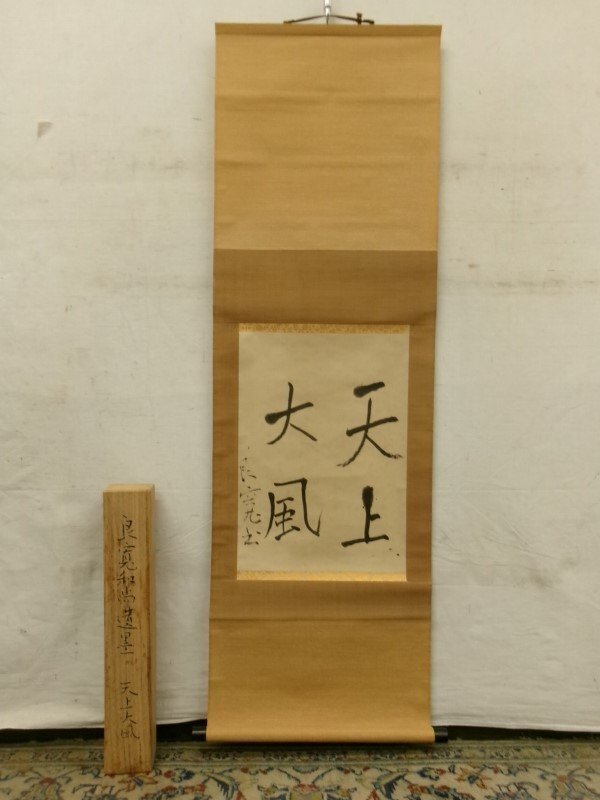 天上
大風
良寛書
良寛和尚遺墨 天上大風